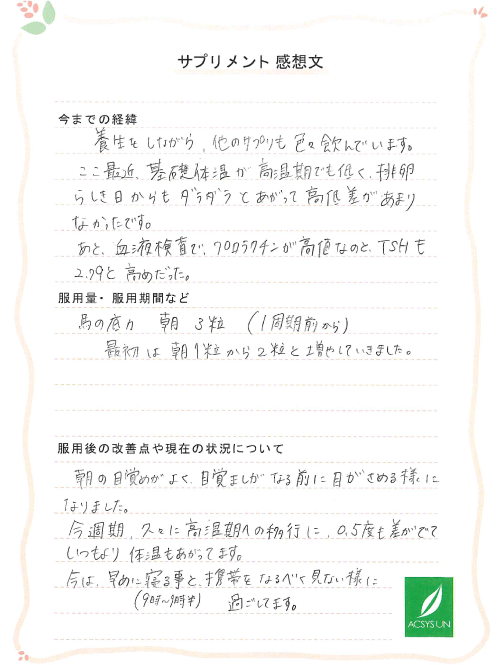 サプリメント 感想文
今までの経緯
養生をしながら、他のサプリも色々飲んでいます。
ここ最近、基礎体温が高温期でも低く、排卵
らしき日からもダラダラとあがって高低差があまり
なかったです。
あと、血液検査で、プロラクチンが高値なのと、TSHも
2.79と高めだった。
服用量・服用期間など
馬の底力 朝 3粒 (1周期前から)
最初は朝1粒から2粒と増やしていきました。
服用後の改善点や現在の状況について
朝の目覚めがよく、目覚ましがなる前に目がさめる様に
なりました。
今週期、久々に高温期への移行に、0.5度も差がでて
いつもより体温もあがってます。
今は、早めに寝る事と、携帯をなるべく見ない様に
(9時〜9時半) 過ごしてます。
ACSYSUN